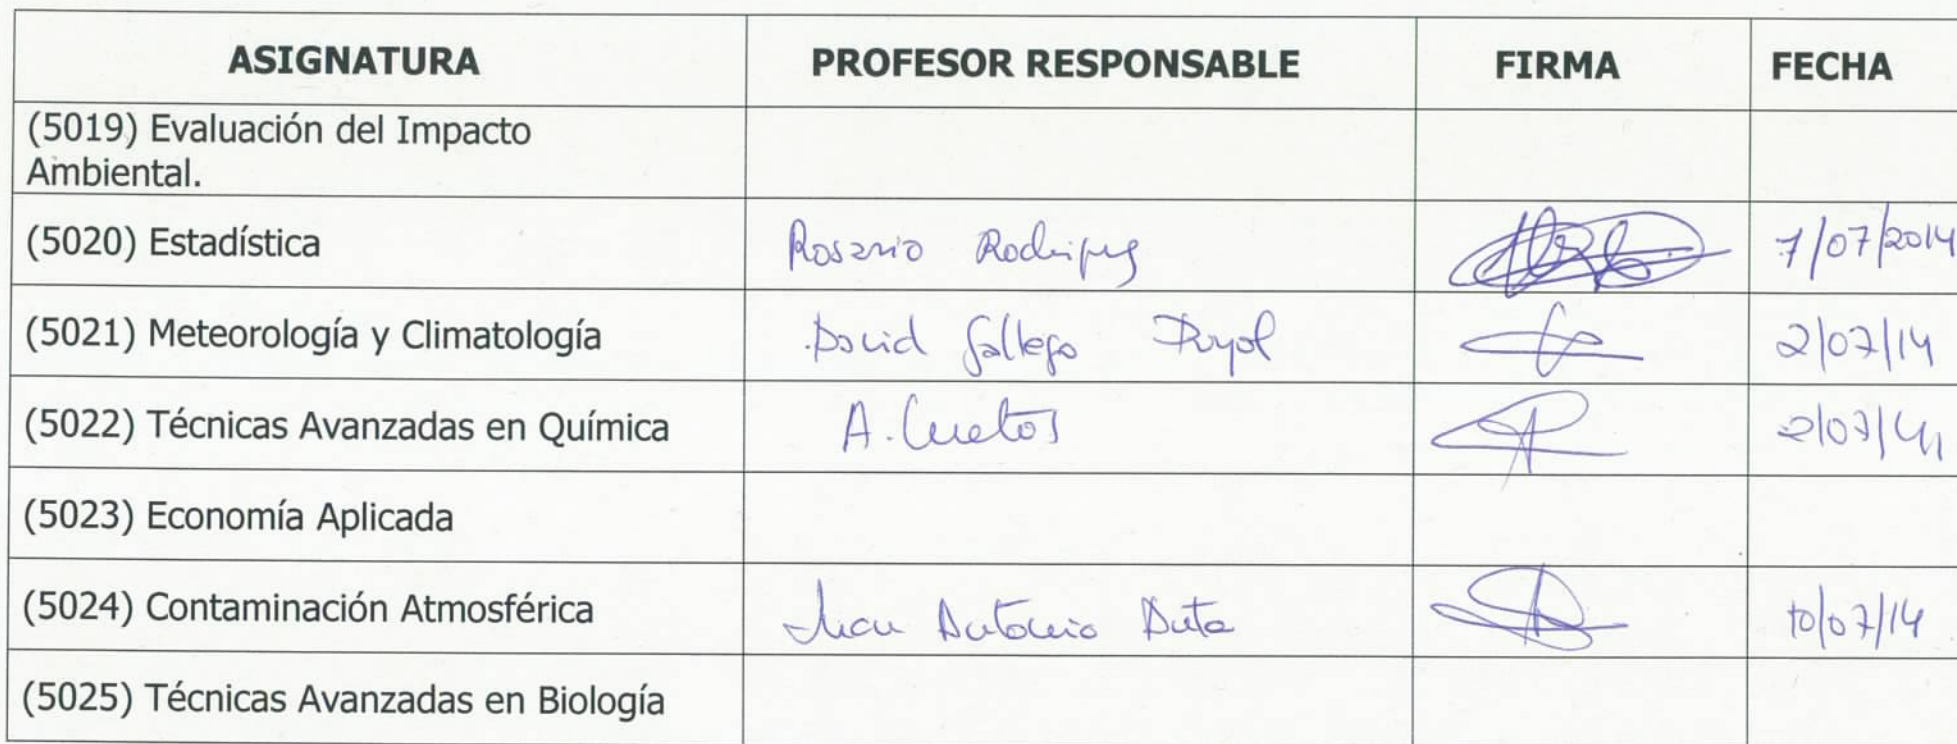 ASIGNATURA PROFESOR RESPONSABLE FIRMA FECHA
(5019) Evaluación del Impacto
Ambiental.
(5020) Estadística Rosario Rodríguez 7/07/2014
(5021) Meteorología y Climatología David Gallego Puyol 2/07/14
(5022) Técnicas Avanzadas en Química A. Cuetos 2/07/14
(5023) Economía Aplicada
(5024) Contaminación Atmosférica Juan Antonio 10/07/14
(5025) Técnicas Avanzadas en Biología